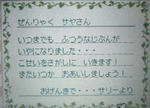 ぜんりゃく サヤさん
いつまでも ふつうなじぶんが
いやになりました・・・
こせいをさがしに いきます！
またいつか おあいしましょう！
おげんきで・・・サリーより